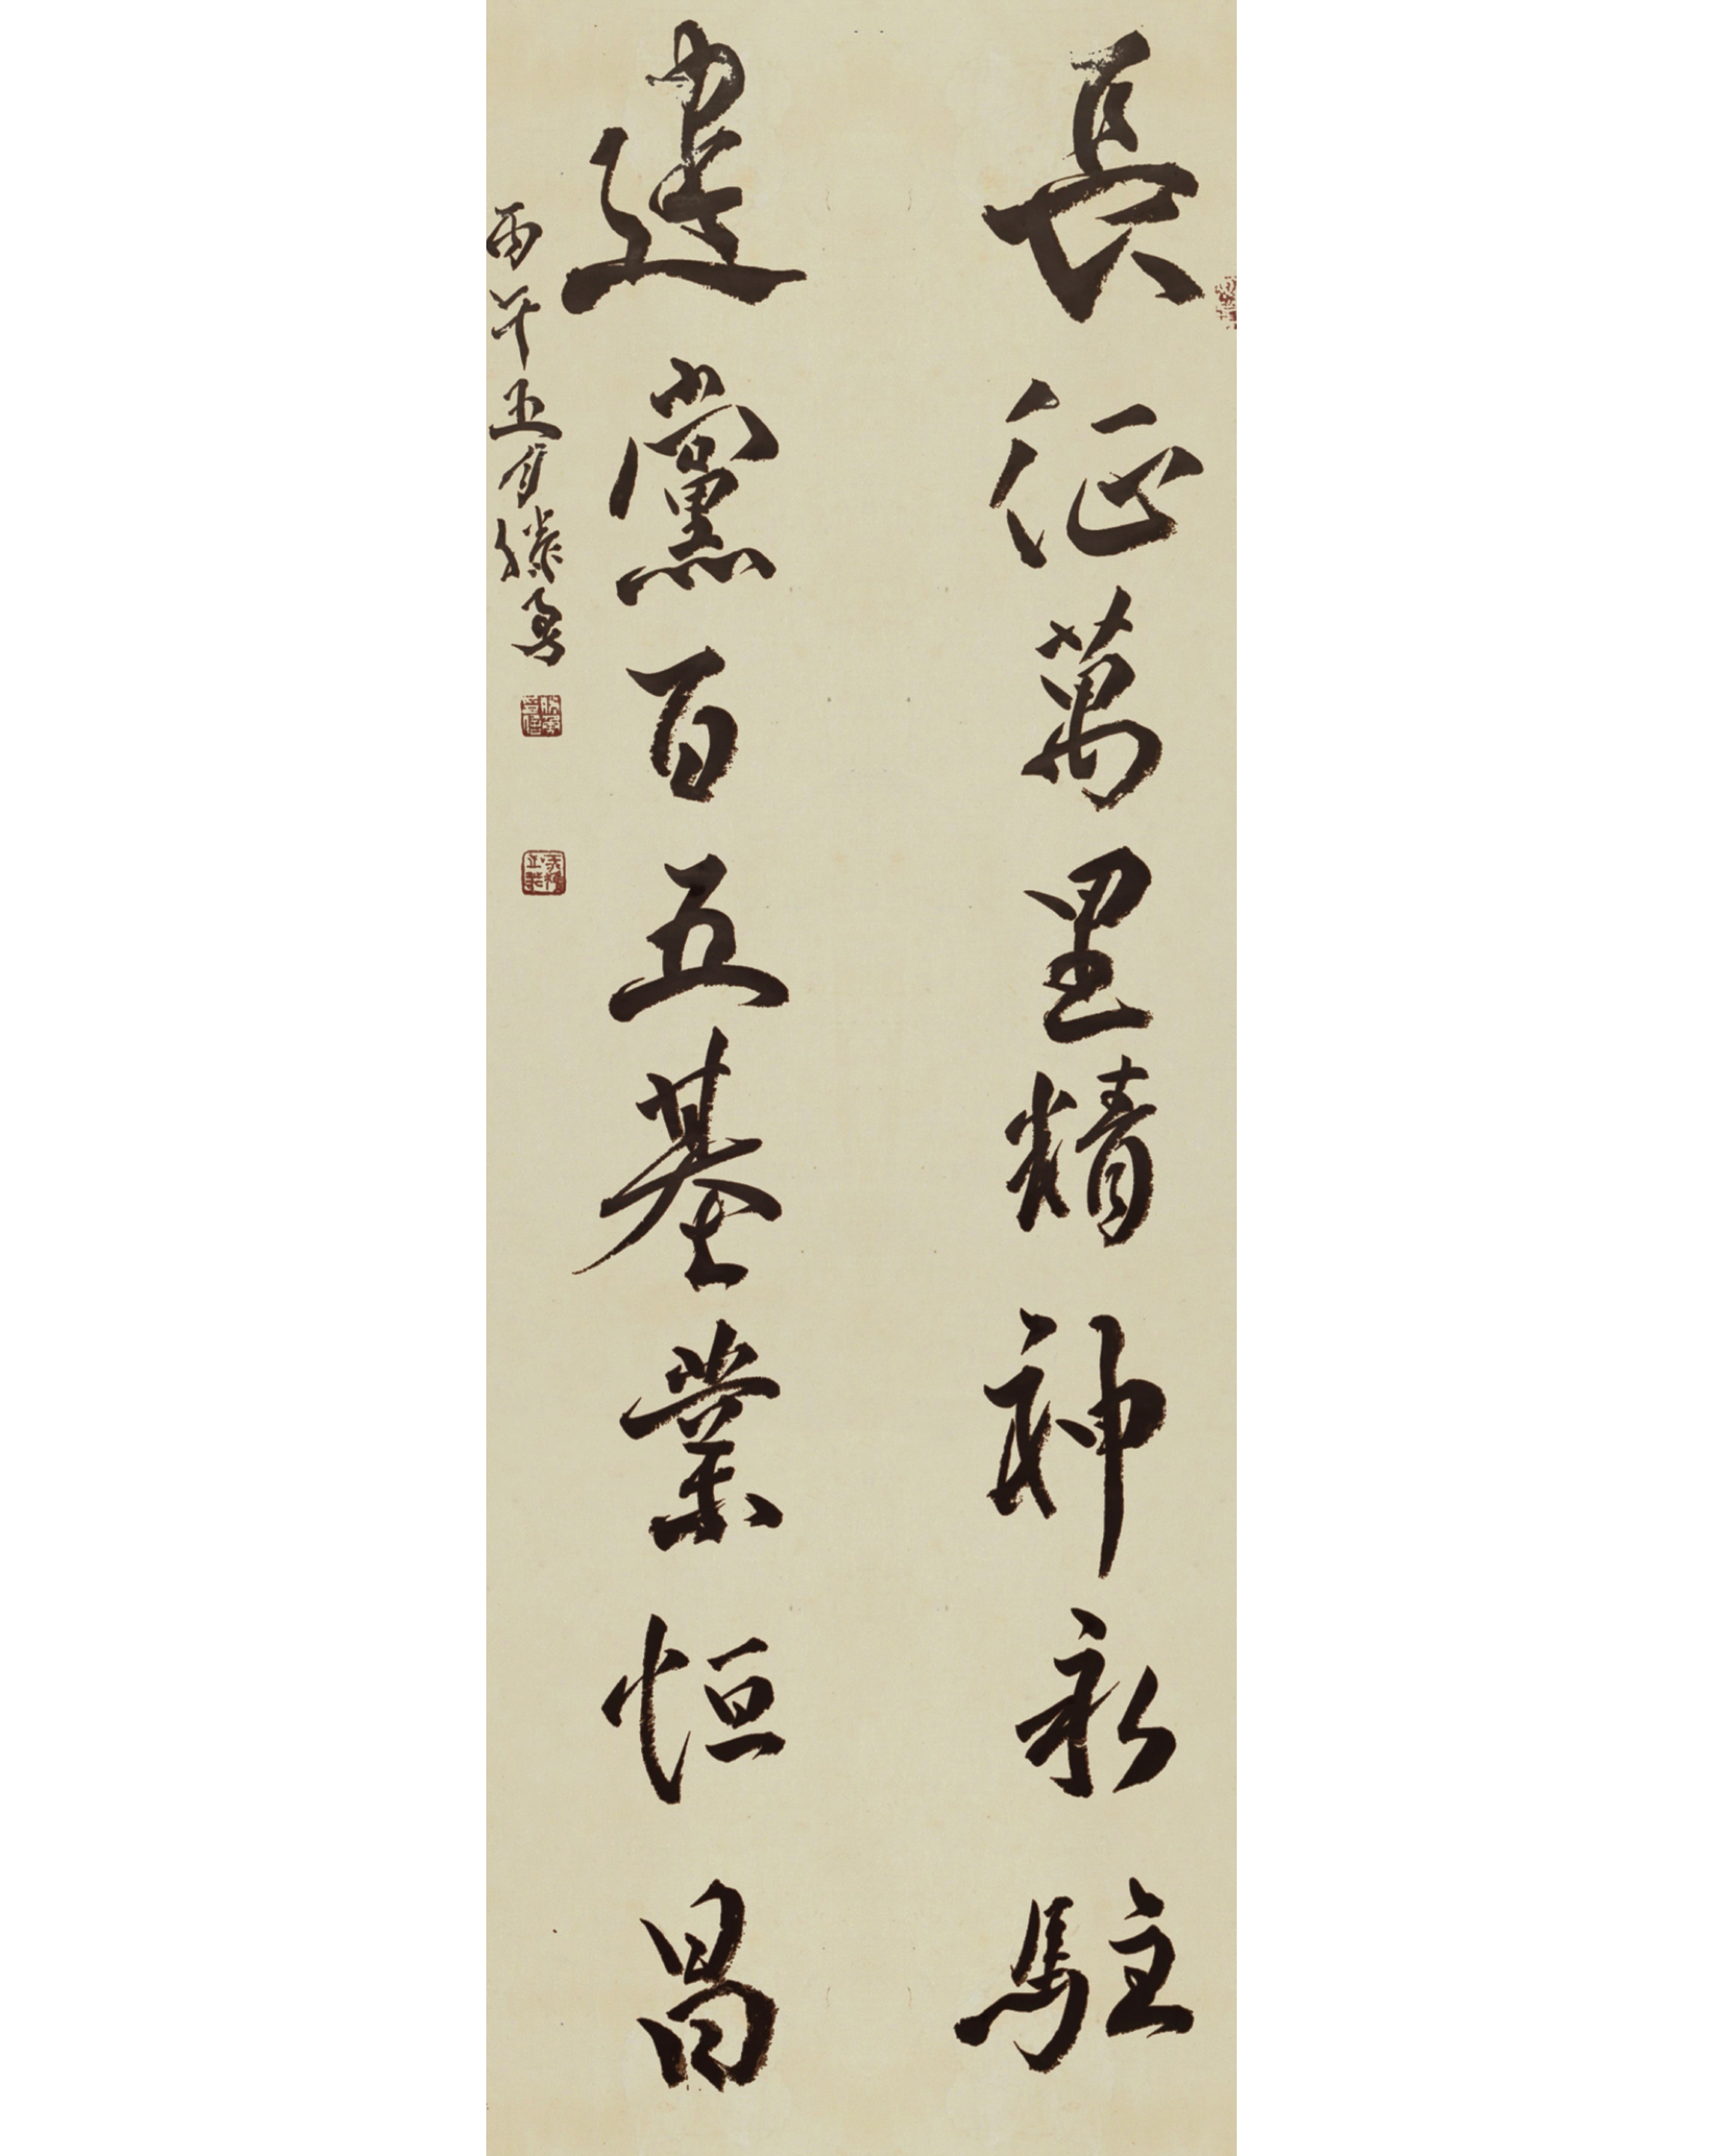 長征萬里精神永駐
建黨百五基業恒昌
丙午五月